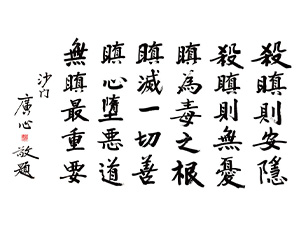 殺瞋則安隱
殺瞋則無憂
瞋為毒之根
瞋滅一切善
瞋心墮惡道
無瞋最重要
沙门
廣心敬題